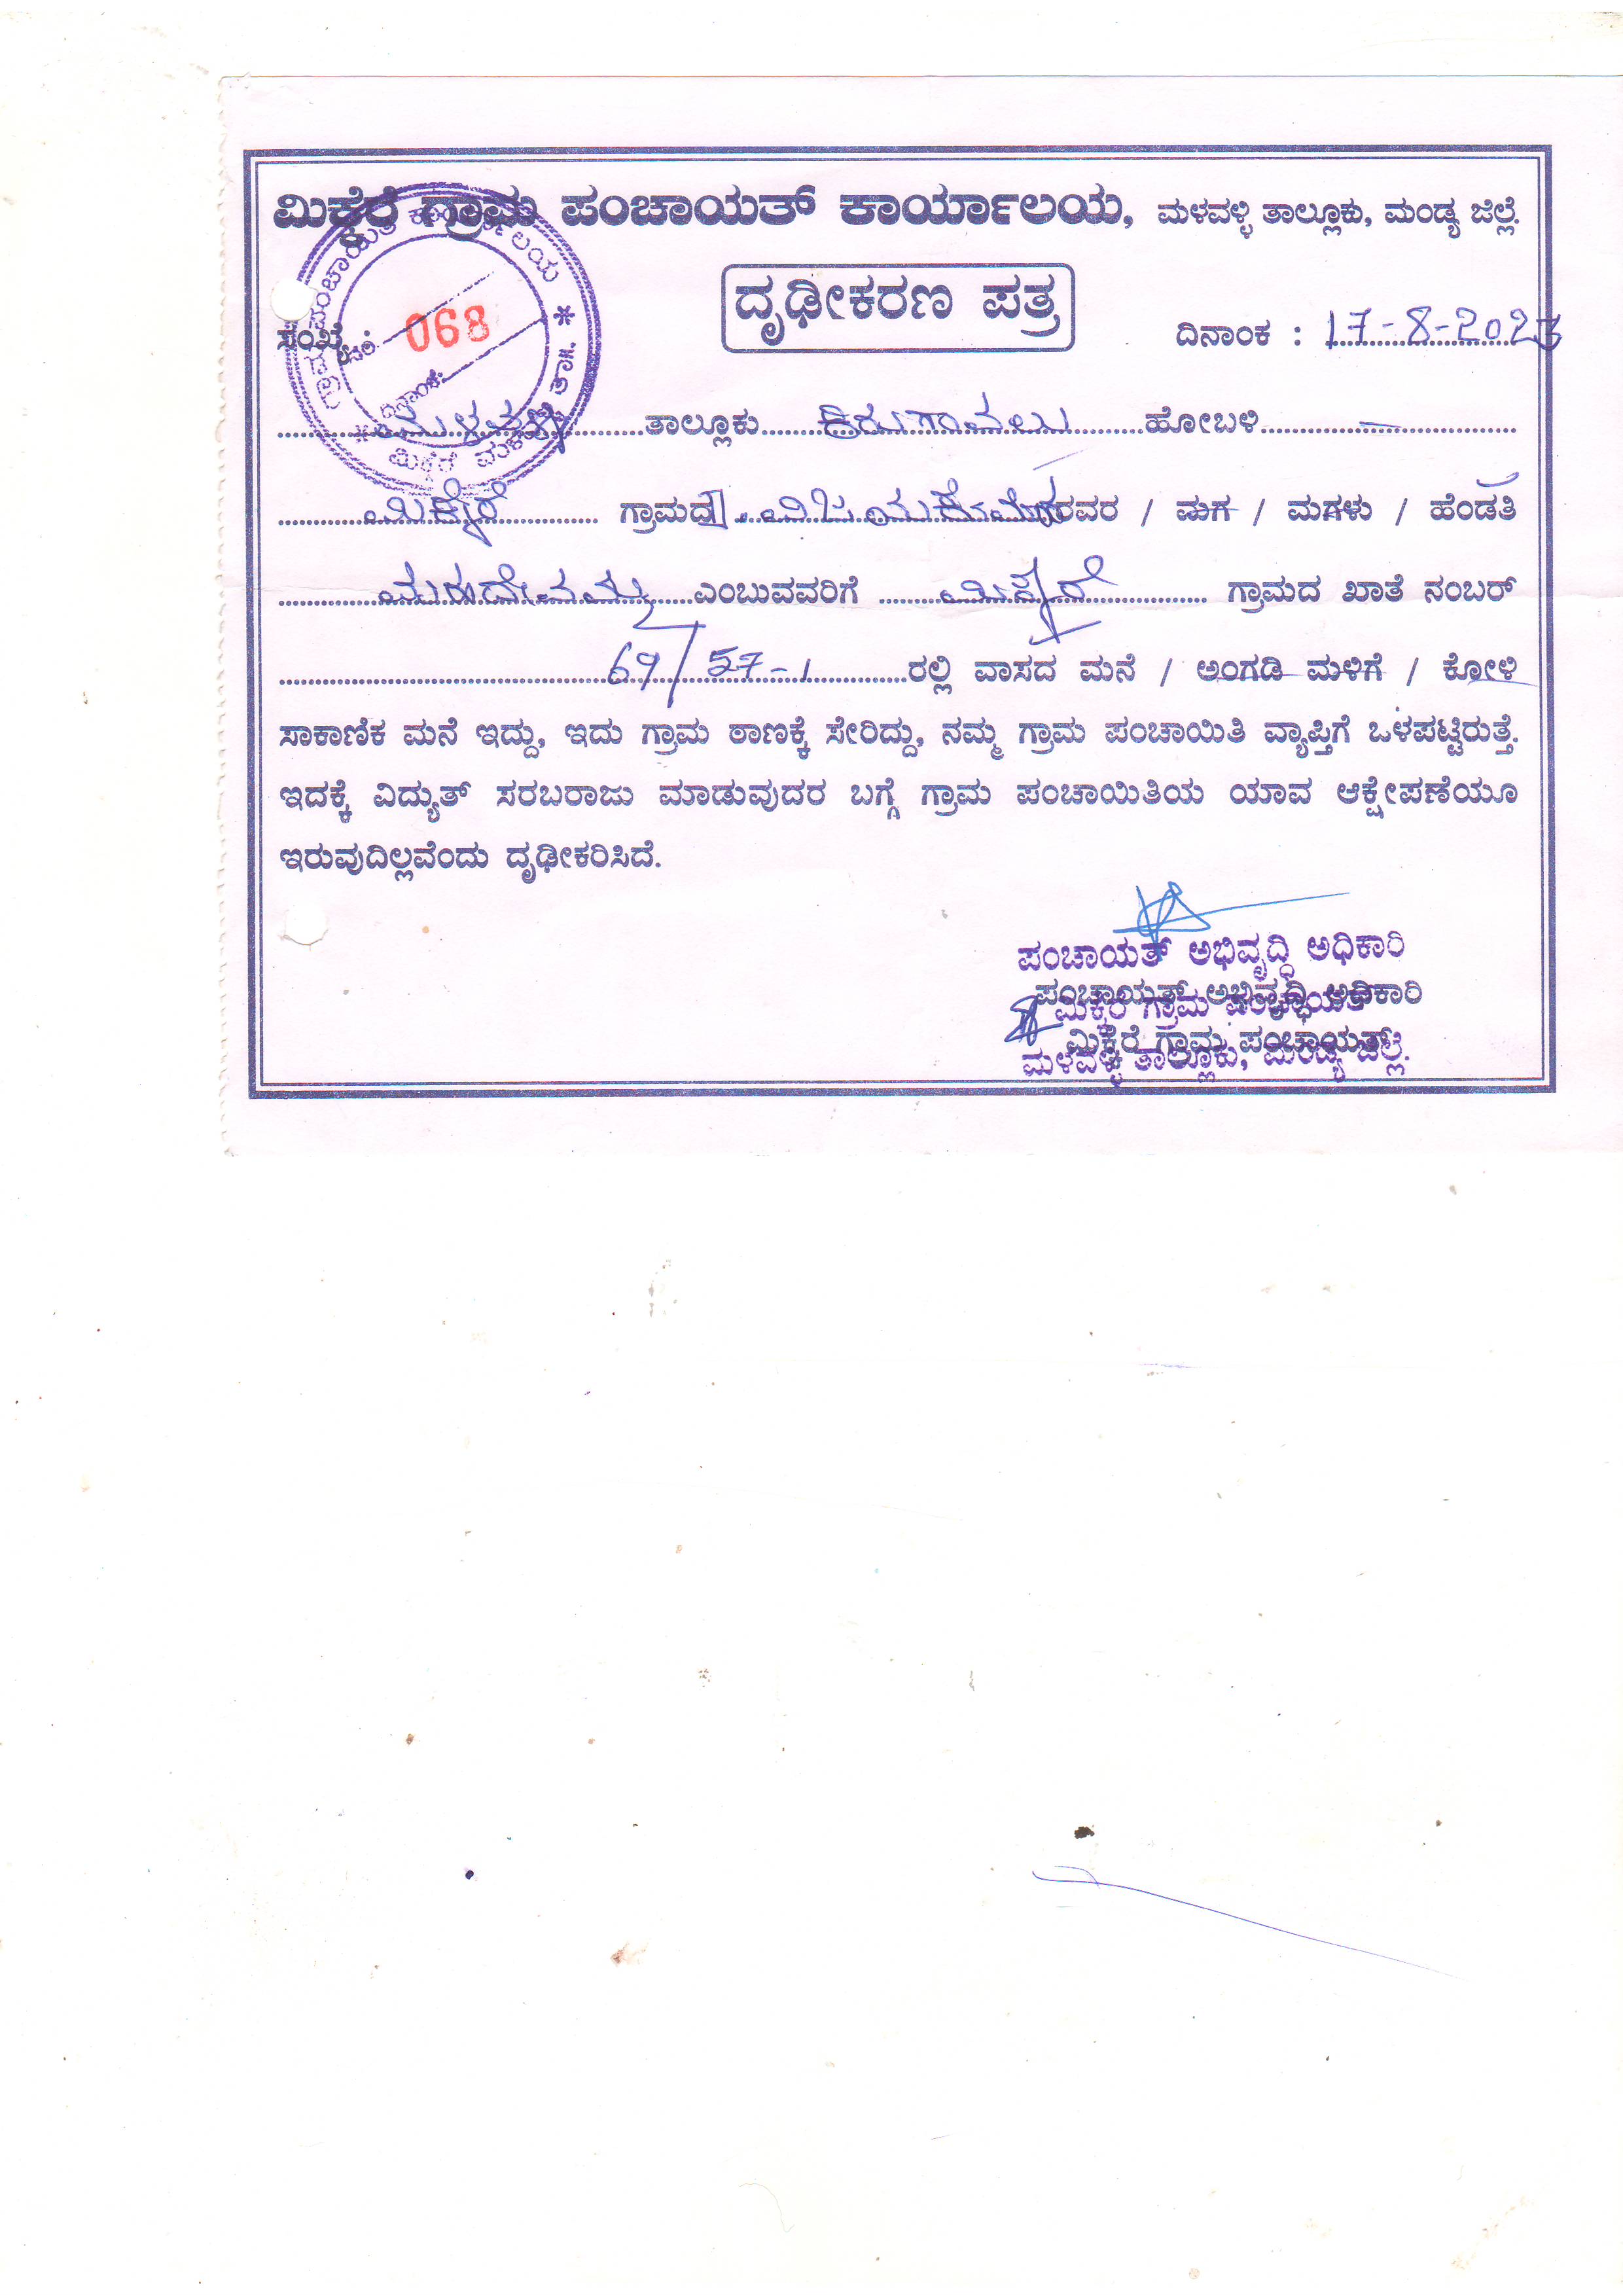 ಮಿಕ್ಕೆರೆ ಗ್ರಾಮ ಪಂಚಾಯತ್ ಕಾರ್ಯಾಲಯ, ಮಳವಳ್ಳಿ ತಾಲ್ಲೂಕು, ಮಂಡ್ಯ ಜಿಲ್ಲೆ.
ದೃಢೀಕರಣ ಪತ್ರ
ಸಂಖ್ಯೆ : 068 ದಿನಾಂಕ : 17-8-2023
ಮಳವಳ್ಳಿ ತಾಲ್ಲೂಕು ಕಿರುಗಾವಲು ಹೋಬಳಿ –
ಮಿಕ್ಕೆರೆ ಗ್ರಾಮದ ರವರ / ಮಗ / ಮಗಳು / ಹೆಂಡತಿ
ಮಹದೇವಮ್ಮ ಎಂಬುವವರಿಗೆ ಮಿಕ್ಕೆರೆ ಗ್ರಾಮದ ಖಾತೆ ನಂಬರ್
69/57-1 ರಲ್ಲಿ ವಾಸದ ಮನೆ / ಅಂಗಡಿ ಮಳಿಗೆ / ಕೋಳಿ
ಸಾಕಾಣಿಕ ಮನೆ ಇದ್ದು, ಇದು ಗ್ರಾಮ ಠಾಣಕ್ಕೆ ಸೇರಿದ್ದು, ನಮ್ಮ ಗ್ರಾಮ ಪಂಚಾಯಿತಿ ವ್ಯಾಪ್ತಿಗೆ ಒಳಪಟ್ಟಿರುತ್ತೆ.
ಇದಕ್ಕೆ ವಿದ್ಯುತ್ ಸರಬರಾಜು ಮಾಡುವುದರ ಬಗ್ಗೆ ಗ್ರಾಮ ಪಂಚಾಯಿತಿಯ ಯಾವ ಆಕ್ಷೇಪಣೆಯೂ
ಇರುವುದಿಲ್ಲವೆಂದು ದೃಢೀಕರಿಸಿದೆ.
ಪಂಚಾಯತ್ ಅಭಿವೃದ್ಧಿ ಅಧಿಕಾರಿ
ಪಂಚಾಯತ್ ಅಭಿವೃದ್ಧಿ ಅಧಿಕಾರಿ
ಮಿಕ್ಕೆರೆ ಗ್ರಾಮ ಪಂಚಾಯತಿ
ಮಿಕ್ಕೆರೆ ಗ್ರಾಮ ಪಂಚಾಯತ್
ಮಳವಳ್ಳಿ ತಾಲ್ಲೂಕು, ಮಂಡ್ಯ ಜಿಲ್ಲೆ.